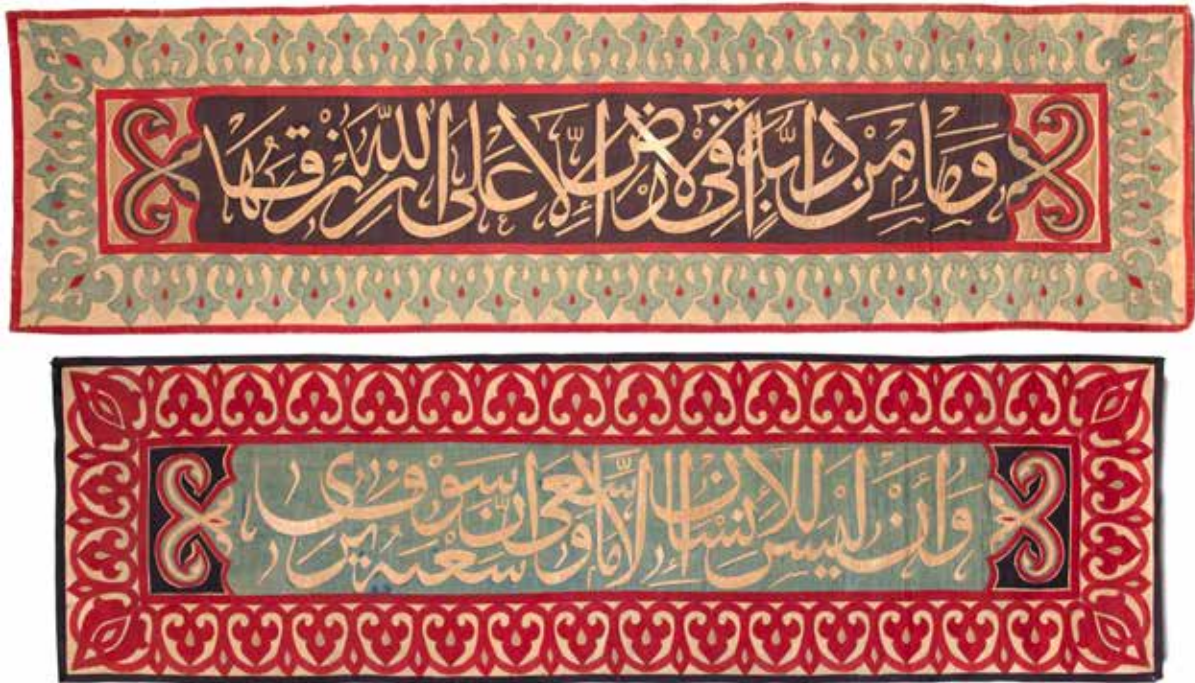 وما من دابة في الارض إلا على الله رزقها
وأن ليس للإنسان إلا ما سعى وأن سعيه سوف يرى